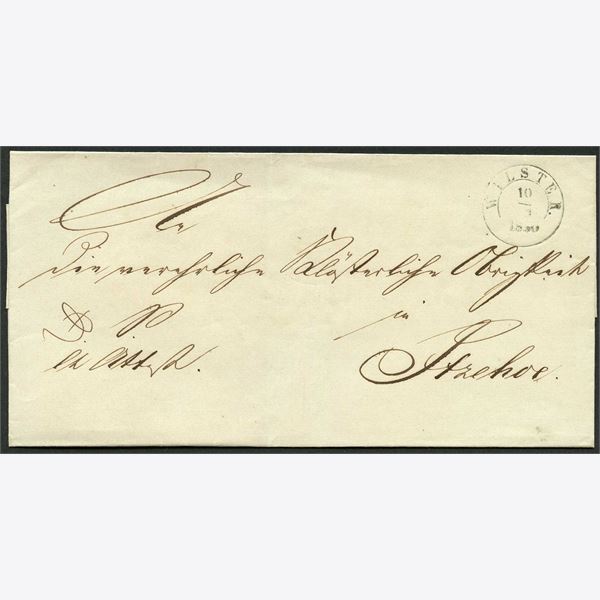 WILSTER.
10
An
die verehrliche Klösterliche Obrigkeit
in
Itzehoe.
Attest.